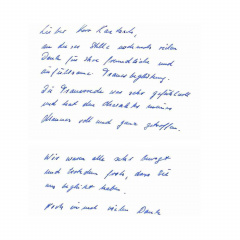 Lieber Herr Kasten,
an dieser Stelle nochmals vielen
Dank für Ihre freundliche und
einfühlsame Trauerbegleitung.
Die Trauerrede war sehr gefühlvoll
und hat den Charakter meines
Mannes voll und ganz getroffen.
Wir waren alle sehr bewegt
und trotzdem froh, dass Sie
uns begleitet haben.
Noch einmal vielen Dank